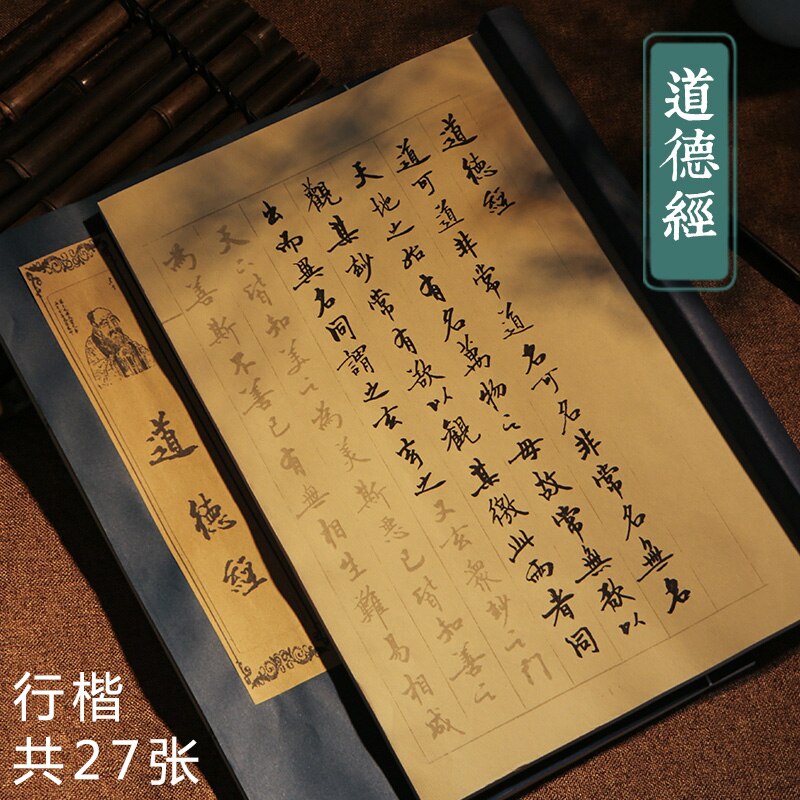 道德經
道德經
道可道非常道名可名非常名無名
天地之始有名萬物之母故常無欲以
觀其妙常有欲以觀其徼此兩者同
出而異名同謂之玄玄之又玄眾妙之門
天下皆知美之為美斯惡已皆知善之
為善斯不善已有無相生難易相成
道德經
行楷
共27张